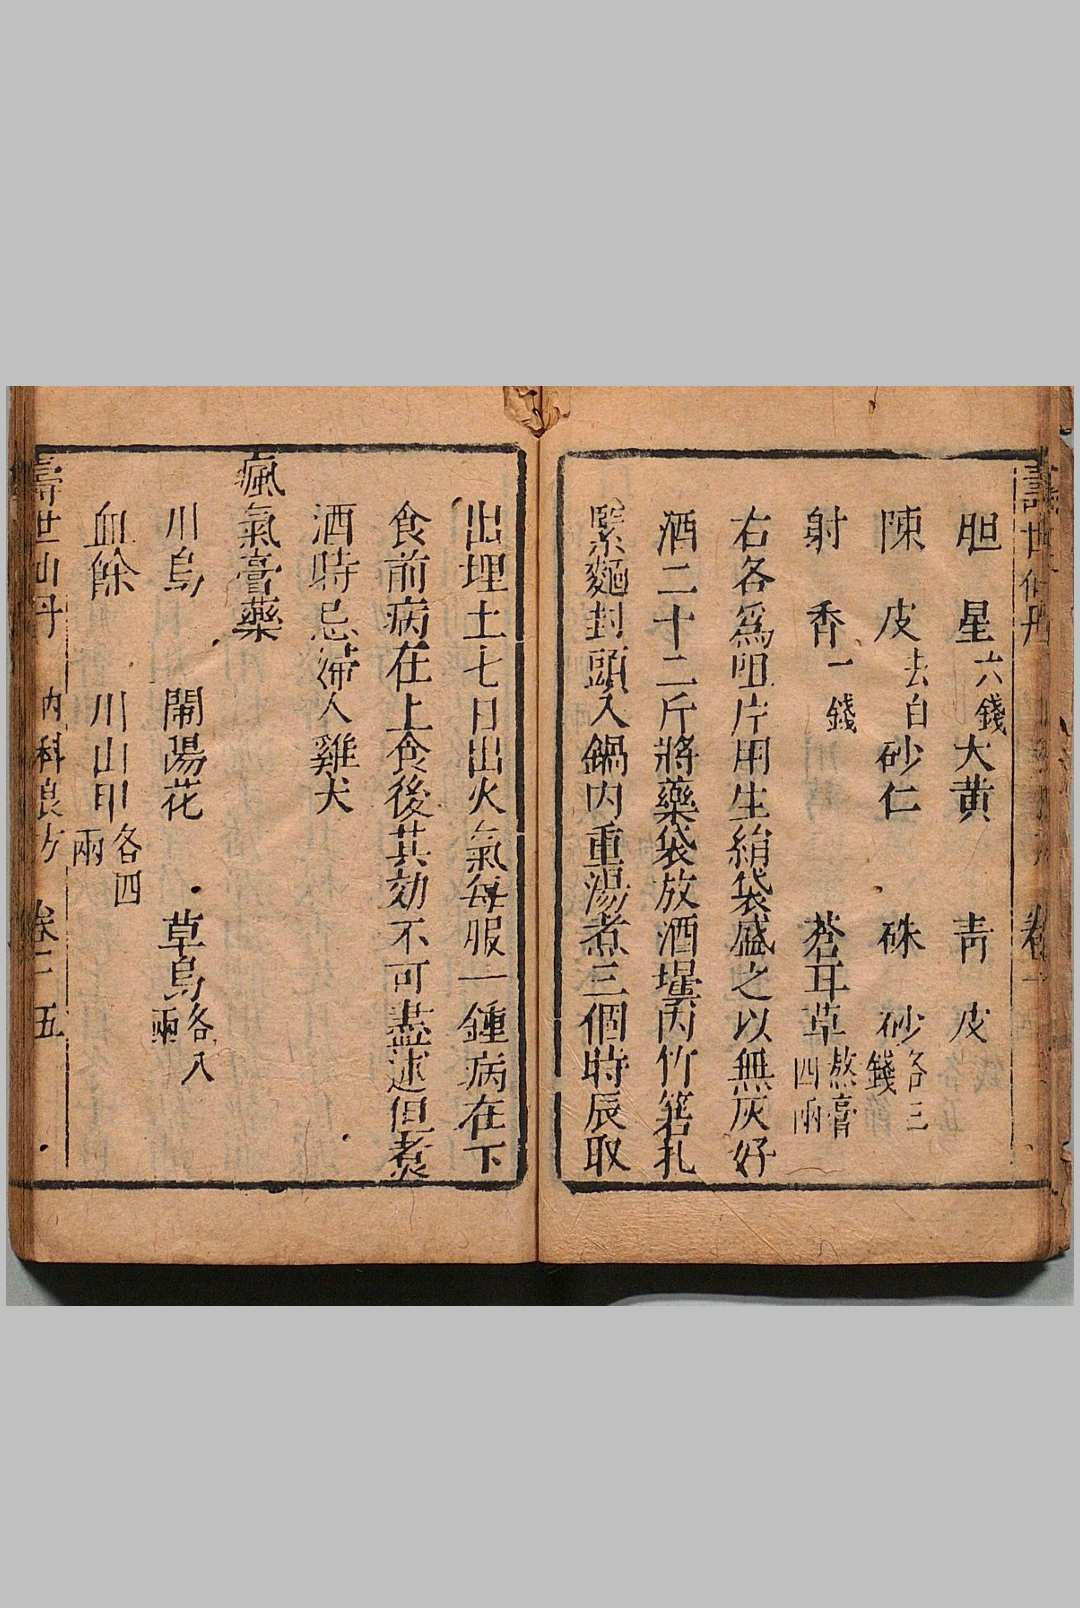 胆星六錢大黃 青皮
陳皮去白砂仁 硃砂各三錢
射香一錢 蒼耳草熬膏四兩
右各爲咀片用生絹袋盛之以無灰好
酒二十二斤將藥袋放酒壜內竹箬扎
緊麵封頭入鍋內重湯煮三個時辰取
出埋土七日出火氣每服一鍾病在下
食前病在上食後其効不可盡述但煮
酒時忌婦人雞犬
瘋氣膏藥
川烏 鬧陽花 草烏各八兩
血餘 川山甲各四兩
壽世仙丹 內科良方 卷二 五